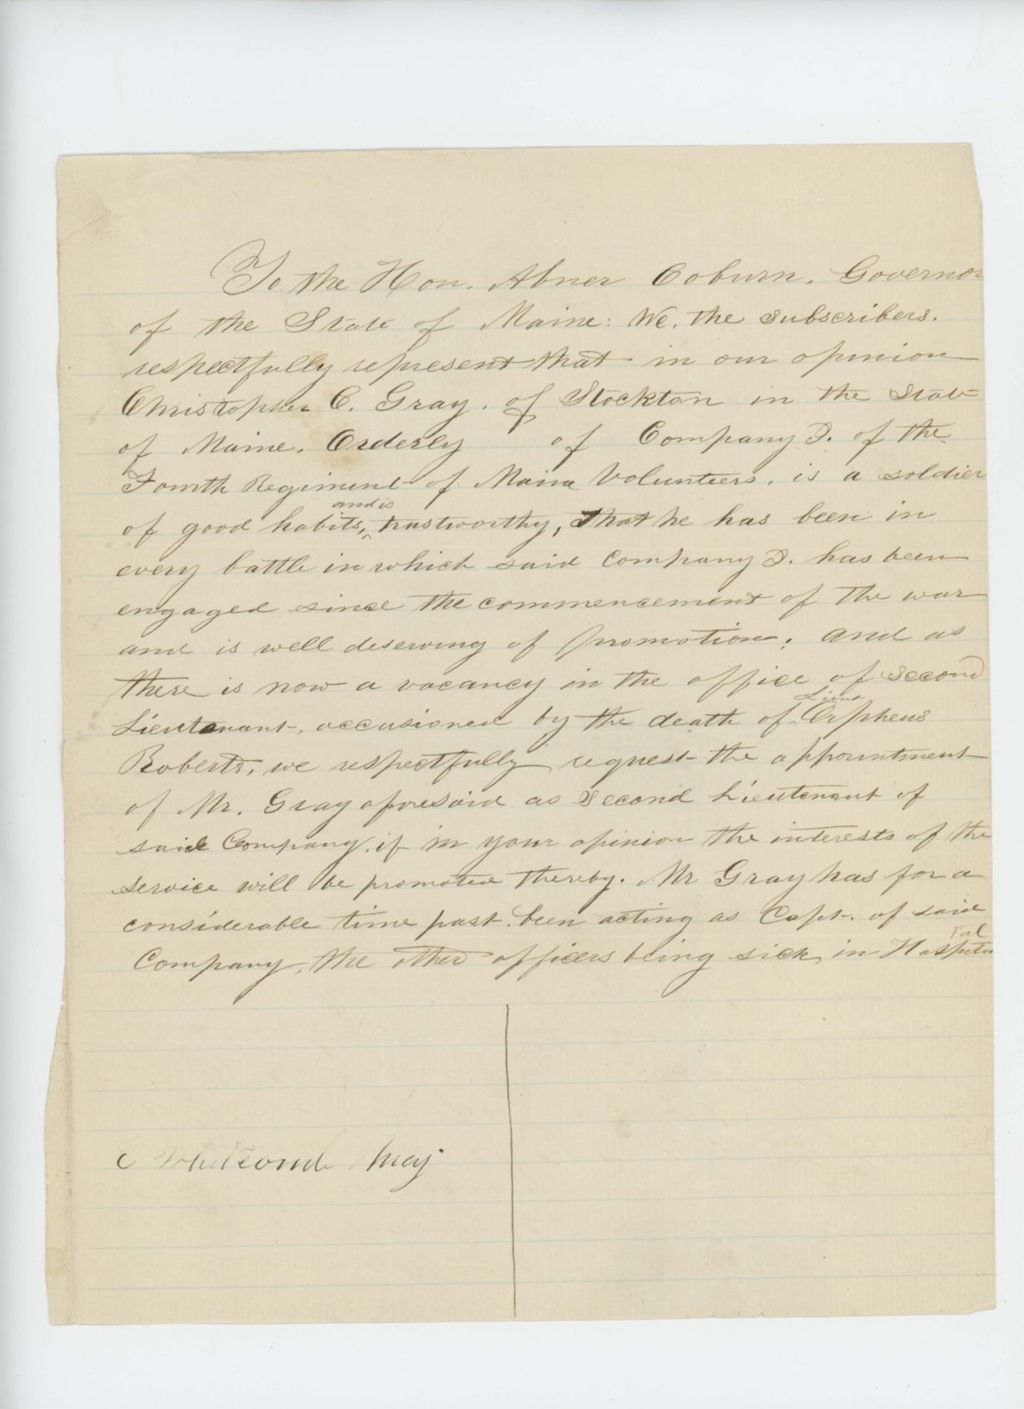 To the Hon. Abner Coburn, Governor
of the State of Maine: We, the subscribers,
respectfully represent that in our opinion
Christopher C. Gray, of Stockton in the State
of Maine, Orderly of Company I. of the
Fourth Regiment of Maine Volunteers, is a soldier
and is
of good habits, ^ trustworthy, that he has been in
every battle in which said Company I. has been
engaged since the commencement of the war
and is well deserving of promotion; and as
there is now a vacancy in the office of Second
Lieut
Lieutenant, occasioned by the death of Orpheus
Roberts, we respectfully request the appointment
of Mr. Gray aforesaid as Second Lieutenant of
said Company, if in your opinion the interests of the
service will be promoted thereby. Mr Gray has for a
considerable time past been acting as Capt. of said
Company, the other officers being sick in Hospital
tal
Whitcomb Maj